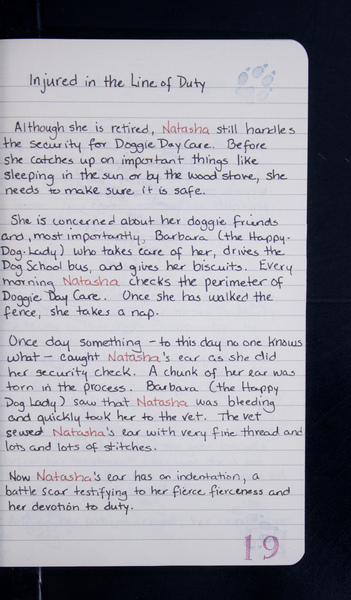 Injured in the Line of Duty
Although she is retired, Natasha still handles
the security for Doggie Day Care. Before
she catches up on important things like
sleeping in the sun or by the wood stove, she
needs to make sure it is safe.
She is concerned about her doggie friends
and, most importantly, Barbara (the Happy-
Dog-Lady) who takes care of her, drives the
Dog School bus, and gives her biscuits. Every
morning Natasha checks the perimeter of
Doggie Day Care. Once she has walked the
fence, she takes a nap.
Once day something - to this day no one knows
what - caught Natasha's ear as she did
her security check. A chunk of her ear was
torn in the process. Barbara (the Happy
Dog Lady) saw that Natasha was bleeding
and quickly took her to the vet. The vet
sewed Natasha's ear with very fine thread and
lots and lots of stitches.
Now Natasha's ear has an indentation, a
battle scar testifying to her fierce fierceness and
her devotion to duty.
19